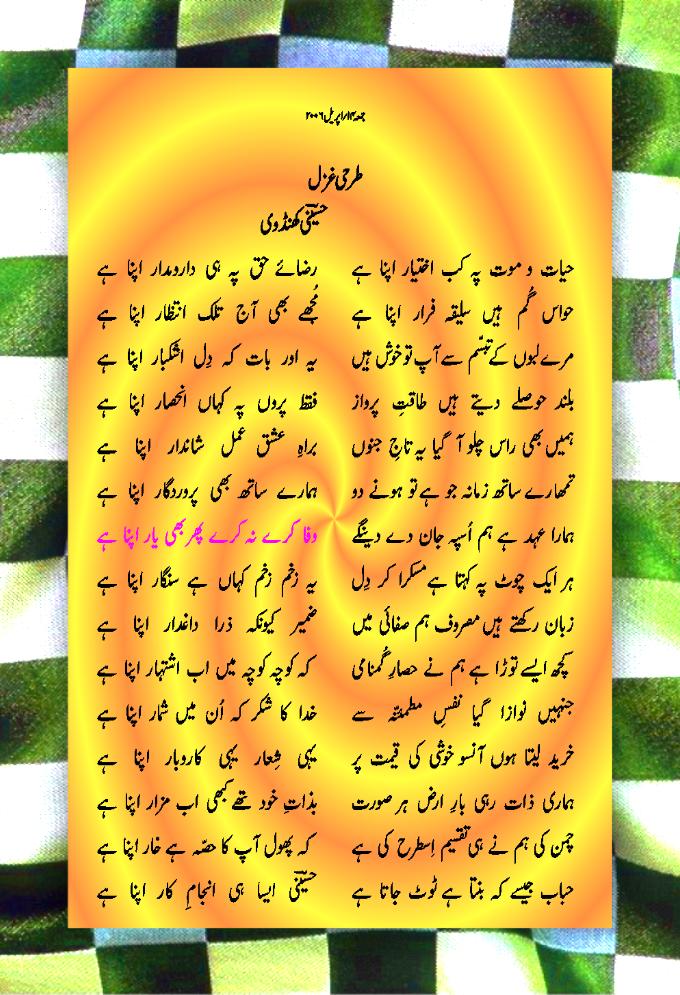 جمعہ ۱۴ اپریل ۲۰۰۶
طرحی غزل
حسینؔی کھنڈوی
حیات و موت پہ کب اختیار اپنا ہے رضائے حق پہ ہی دارومدار اپنا ہے
حواس گُم ہیں سلیقہ فرار اپنا ہے مُجھے بھی آج تلک انتظار اپنا ہے
مرے لبوں کے تبسّم سے آپ تو خوش ہیں یہ اور بات کہ دِل اشکبار اپنا ہے
بلند حوصلے دیتے ہیں طاقتِ پرواز فقط پروں پہ کہاں انحصار اپنا ہے
ہمیں بھی راس چلو آ گیا یہ تاجِ جنوں براہِ عشق عمل شاندار اپنا ہے
تمھارے ساتھ زمانہ جو ہے تو ہونے دو ہمارے ساتھ بھی پروردگار اپنا ہے
ہمارا عہد ہے ہم اُسپہ جان دے دینگے وفا کرے نہ کرے پھر بھی یار اپنا ہے
ہر ایک چوٹ پہ کہتا ہے مسکرا کر دِل یہ زخم زخم کہاں ہے سنگار اپنا ہے
زبان رکھتے ہیں مصروف ہم صفائی میں ضمیر کیونکہ ذرا داغدار اپنا ہے
کچھ ایسے توڑا ہے ہم نے حصارِ گُمنامی کہ کوچہ کوچہ میں اب اشتہار اپنا ہے
جنہیں نوازا گیا نفسِ مطمئنّہ سے خدا کا شکر کہ اُن میں شمار اپنا ہے
خرید لیتا ہوں آنسو خوشی کی قیمت پر یہی شِعار یہی کاروبار اپنا ہے
ہماری ذات رہی بارِ ارض ہر صورت بذاتِ خود تھے کبھی اب مزار اپنا ہے
چمن کی ہم نے ہی تقسیم اِسطرح کی ہے کہ پھول آپ کا حصّہ ہے خار اپنا ہے
حباب جیسے کہ بنتا ہے ٹوٹ جاتا ہے حسینؔی ایسا ہی انجامِ کار اپنا ہے